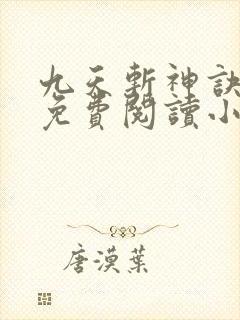 九天斬神訣
免費閱讀小
唐漠葉